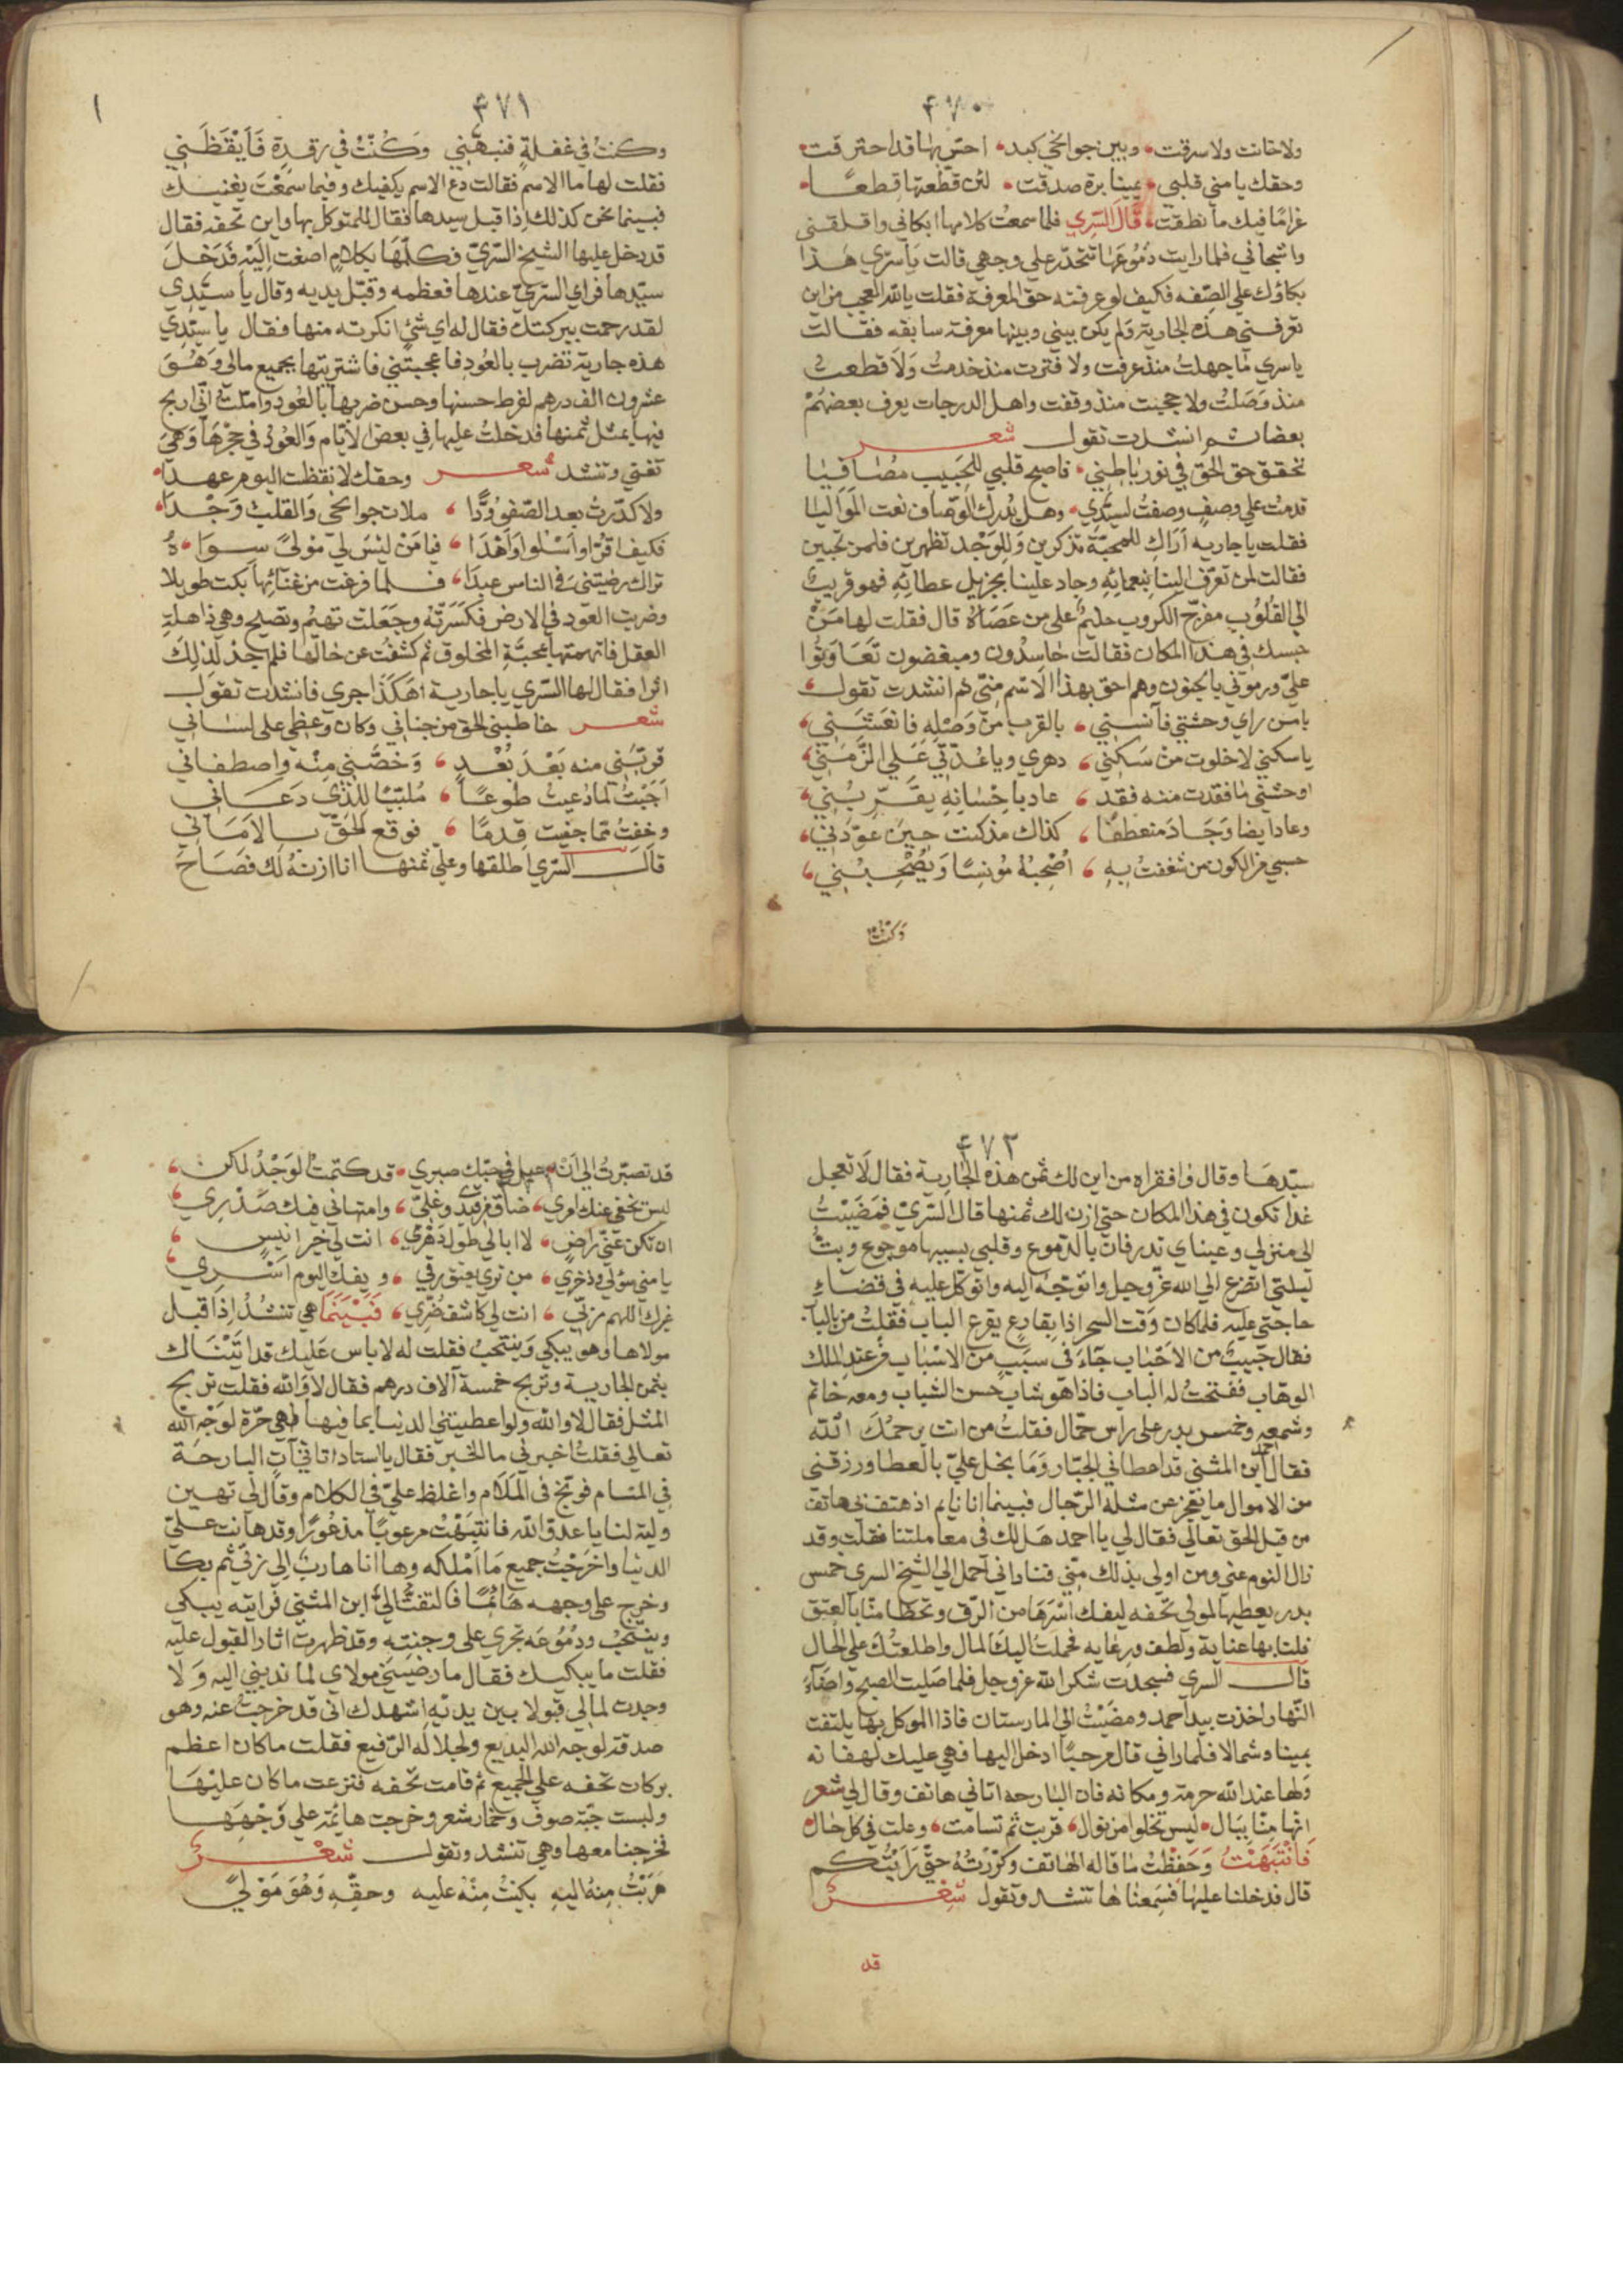 ٤٧٠
ولا خانت ولا سرقت، وبين جوانحي كبد، احس بها قد احترقت،
وحقك يا مني قلبي، يمينا برة صدقت، لئن قطعتها قطعًا،
غرامًا فيك ما نطقت، قَالَ السّري فلما سمعت كلامها ابكاني واقلقني
واشجاني فلما رايت دُمُوعَهَا تتحدّر علي وجهي قالت يا سرّي هَذا
بكاؤك علي الصّفه فكيف لو عرفته حق المعرفة فقلت يا لله العجب من اين
تعرفني هذه الجارية ولم يكن بيني وبينها معرفة سابقه فقالت
يا سري مَا جهلتُ منذ عرفت ولا فترت منذ خدمتُ وَلاَ قطعت
منذ وَصَلتُ ولا حجبت منذ وقفت واهل الدرجات يعرف بعضهُمْ
بعضا ثم انشدت تقول شعر
تحقق حق الحق في نور باطني، فاصبح قلبي للحَبيب مُصَافيا
قدمتُ علي وصفٍ وصفتُ لسيّدي، وهل يُدرك الوَصّاف نعت المَوَاليا
فقلت يا جاريه اَرَاكِ للمحبّة تذكرين وَللِوَجْد تظهرين فلمن تحبين
فقالت لمن تعرّف الينا بنعمائِهِ وجاد علينا بجزيل عطائِهِ فهو قريب
الي القلُوُب مفرّج الكروب حليمٌ علي من عَصَاهُ قال فقلت لها مَنْ
حبسك في هذا المكان فقالت حَاسِدُون ومبغضون تَعَاوَنُوا
عليّ ورموني بالجنون وهم احق بهذا الاسْم منّي ثم انشدت تقول،
يا من راي وحشتي فآنسني، بالقرب من وَصْلِهِ فانعَشَني،
يا سكني لا خلوت من سَكني، دهري ويا عُدّتي عَلي الزّمَنِ،
اوحشني ما فقدت منه فقد، عاد باحْسَانِهِ يقَرّبُني،
وعاد ايضا وَجَادَ منعطفًا، كذاك مذ كنت حينَ عوّدني،
حسبي من الكون من شغفتُ بِهِ، اُصْحِبُهُ مُونسًا وَيُصْحِبُني،
وكنت في
٤٧١
وكنتُ في غفلةٍ فنبهّني وَكُنْتُ في رَقدِةٍ فَاَيْقَظَني
فقلت لها ما الاسم فقالت دَع الاسم يكفيك وفيما سَمِعْتَ يغنيك
فبينما نحن كذلك اِذا قبل سيدها فقال للمتوكل بها واين تحفه فقال
قد دخل عليها الشيخ السّريّ فكلّمَهَا بكلامٍ اصغت اِلَيْهِ فَدَخَلَ
سيّدها فراي السّريّ عندها فعظمه وقبّل يديه وقال يا سيّدي
لقد رحمت ببركتك فقال له اي شئ انكرته منها فقال يا سيّدي
هذه جارية تضرب بالعُودِ فاعجبتني فاشتريتها بجميع مالي وَهُوَ
عشرون الف درهم لفرط حسنها وحسن ضربها بالعُود وامّلت انّي اربح
فيها بمثل ثمنها فدخلتُ عليها في بعض الاَيّام وَالعُودُ في حِجْرِهَا وَهيَ
تغني وتنشد شعر وحقك لا نقظت اليوم عهدًا،
ولا كدّرتُ بعد الصّفو وُدًّا، ملات جوانحي وَالقلبَ وَجْدًا،
فكيف اقرّ او اَسْلوا وَاَهْدَا، فيا مَنْ ليْسَ لي مَوليً سوَاهُ،
تراك رضيتني في الناس عبدًا، فلما فرغت من غنَائِهَا بكت طويلا
وضربت العوْد في الارض فكَسَرَتْهُ وجَعَلت تهيُم وتصيح وهي ذاهلة
العقل فاتهمتها بمحبَّةِ المخلوق ثم كشفتُ عن حَالهَا فلم اجد لذلِكَ
اثرًا فقال لها السّري يا جارية اَهكَذا جري فانشدت تقوَل
شعر خاطبني الحق من جناني وكان وعظي علي لساني
قرّبَني منه بَعْدَ بُعْدٍ، وَخصّني مِنْه واصطفاني
اَجَبْتُ لمّا دُعيت طوعًا، مُلبّيًا للّذي دَعَاني
وخفتُ ممّا جنيت قِدمًا، فوقع الحَقّ بالاَمَاني
قال السّري اطلقها وعليّ ثمنها انا ازنهُ لك فصَاحَ
٤٧٢
سيّدهَا وقال وَا فقراه من اين لك ثمن هذه الجَارية فقال لاَ تعجل
غدا تكون في هذا المكان حتي ازن لك ثمنها قال السّريّ فمَضَيْتُ
الي منزلي وعيناي تدرفان بالدّموع وقلبي بسببها موجوع وبتّ
ليلتي اتضرع الي الله عزّ وجل واتوجّه اليه واتوكل عليه في قضاءِ
حاجتي عليهِ فلما كان وَقت السحر اذا بقارع يقرع الباب فقلتُ من بالباب
فقال حَبيبٌ من الاَحْبَاب جَآءَ في سبَبٍ من الاسْبَاب من عندِ الملك
الوهّاب ففتحتُ له الباب فاذا هُو شاب حسن الشباب ومعه خادم
وشمعه وخمس بدر علي راس حمّال فقلتُ من انت يرحمُكَ اللّه
فقال احمد ابن المثني قد اعطاني الجبّار وَمَا بخل عليّ بالعطا ورزقني
من الاموال ما يعجز عن مثله الرّجال فبينما انا نايم اذ هتف بي هاتف
من قبل الحق تعالي فقال لي يا احمد هَل لك في معاملتنا فقلت وقد
زال النوم عني ومن اولي بذلك منّي فناداني احمل الي الشيخ السري خمس
بدر يعطيها لمولي تحفه ليفك اَسْرَهَا من الرّق وتحظا منّا بالعتق
فلنا بها عناية ولطف ورعايه فحملتُ اليك المال واطلعتُكَ علي الحال
قال السري فسجدت شكرا لله عز وجل فلما صَليت الصبح واضآءَ
النّهار اخذت بيد احمد ومضَيْتُ الي المارستان فاذا الموكل بها يلتفت
يمينا وشمالا فلما راني قال مرحبًا ادخل اليها فهي عليك لهفانه
وَلها عند الله حرمة ومكانه فان البارحه اتاني هاتف وقال لي شعر
انها مِنّا ببَال، ليس تخلوا من نوال، قربت ثم تسامت، وعلت في كل حال،
فَانْتَبَهْتُ وَحَفِظْتُ ما قاله الهاتف وكرّرْتُهُ حتّي رَاَيْتُكم
قال فدخلنا عليها فسَمعناها تنشد وتقول شِعْرٌ
قد
قد تصبّرتُ الي اَنْ، عيل في حبّك صبري، قد كتمتُ الوَجْدُ لكن،
ليس تخفي عنك امري، ضاق من قيدي وغليّ، وامتهاني فيك صَدْرِي،
ان تكن عَنّي رَاضٍ، لا ابالي طول دَهْرِي، انت لي خير انيسٍ،
يا مني سؤلي وذخري، من تري يعتق رقي، ويفك اليوم اَسْري
غيرك اللهم ربّي، انت لي كاشف ضُرِّي، فَبَيْنَمَا هي تنشُدُ اِذا قبل
مولاها وهو يبكي وَينتحبُ فقلت له لا باس عَليك قد اتَيْنَاك
بثمن الجارية وتربح خمسة آلاف درهم فقال لا وَالله فقلت تربح
المثل فقال لا والله ولو اعطيتني الدنيا بما فيها هي حرّة لوَجْهِ الله
تعالي فقلتُ اخبرني ما الخبر فقال يا استاد اتاني آتٍ البارحَة
في المنام فوبّخ في المَلاَم واغلظ عليّ في الكلام وقَال لي تهين
وليّه لنا يا عدوّ اللّه فانتبَهْتُ مرعوبًا مذعُورًا وقد هانت عليّ
الدنيا واخرَجْتُ جميع مَا اَمْلكه وها انا هاربٌ اِلي ربّي ثم بكا
وخرج علي وجهه هَائمًا فالتفتُّ اليَّ ابن المثني فرايته يبكي
وينتحبُ ودمُوعَه تجري علي وجنتِه وقد ظهرت اثار القبول عليه
فقلت ما يبكيك فقال ما رضيَني مولاي لما ندبني اليه وَلا
وجدت لمالي قبولا بين يديْهِ اشهدك اني قد خرجت عنه وهو
صدقة لوجه الله البديع ولجلاله الرّفيع فقلت ما كان اعظم
بركات تحفه علي الجميع ثم قامت تحفه فنزعت ما كان عليْهَا
ولبست جبّة صوف وخمار شعر وخرجت هائمة علي وَجْهِهَا
فخرجنا معها وهي تنشد وتقول شعْرٌ
هَرَبْتُ مِنهُ اليهِ بكيْتُ مِنْهُ عليه وحقّهِ وَهُوَ مَوْليً